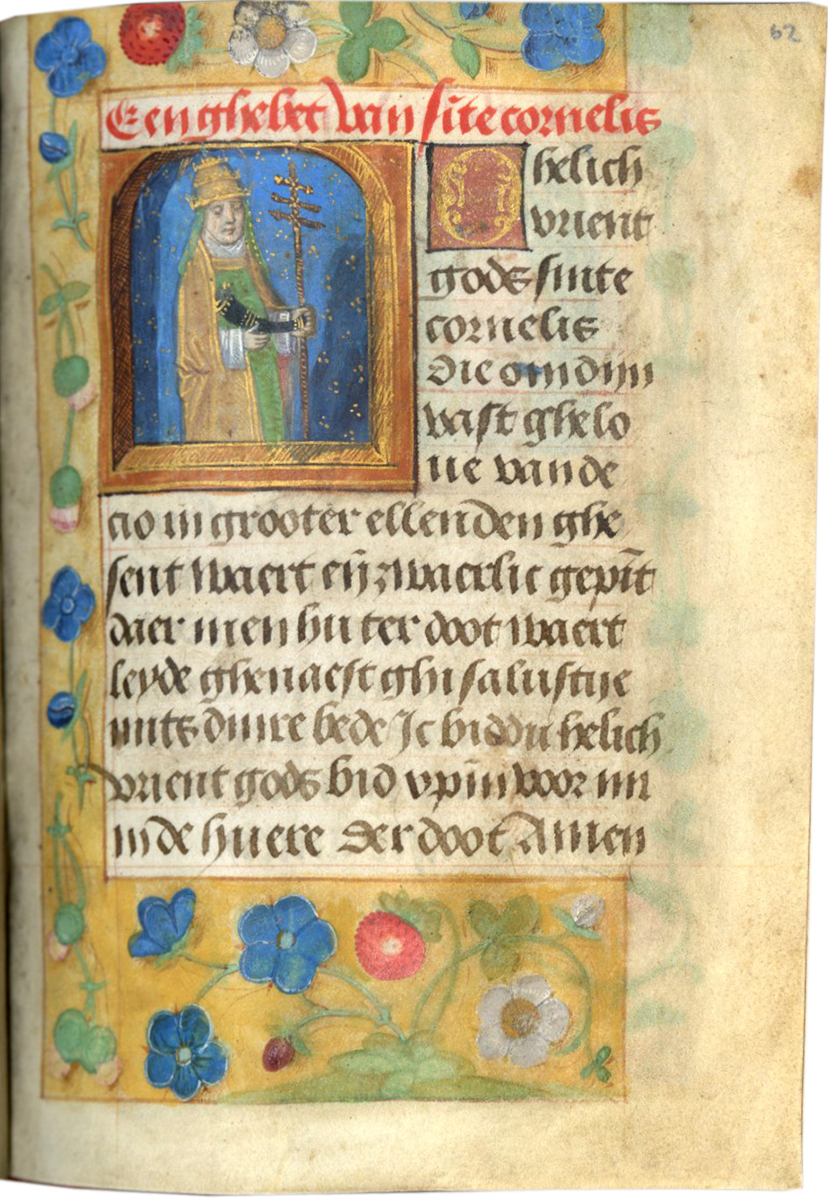 62
Een ghebet van sīte cornelis
O helich
vrient
gods sinte
cornelis
die om dijn
vast ghelo
ue van de
cio in grooter ellenden ghe
sent waert eñ zwaerlic gepīt
daer men hu ter doot waert
leyde ghenaest ghi salustije
mits dinre bede Jc bidd u helich
vrient gods bid vp mi voor mi
in de huere der doot Amen